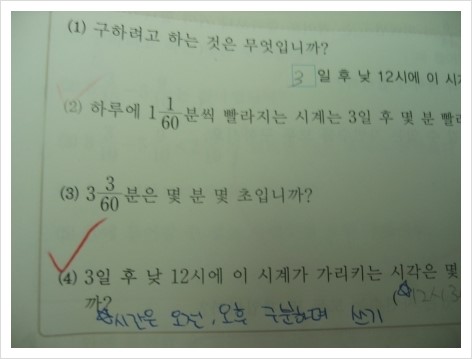 (1) 구하려고 하는 것은 무엇입니까?
3 일 후 낮 12시에 이 시
(2) 하루에 1 1/60 분씩 빨라지는 시계는 3일 후 몇 분 빨
(3) 3 3/60 분은 몇 분 몇 초입니까?
(4) 3일 후 낮 12시에 이 시계가 가리키는 시각은 몇
까?
시간은 오전, 오후 구분하여 쓰기